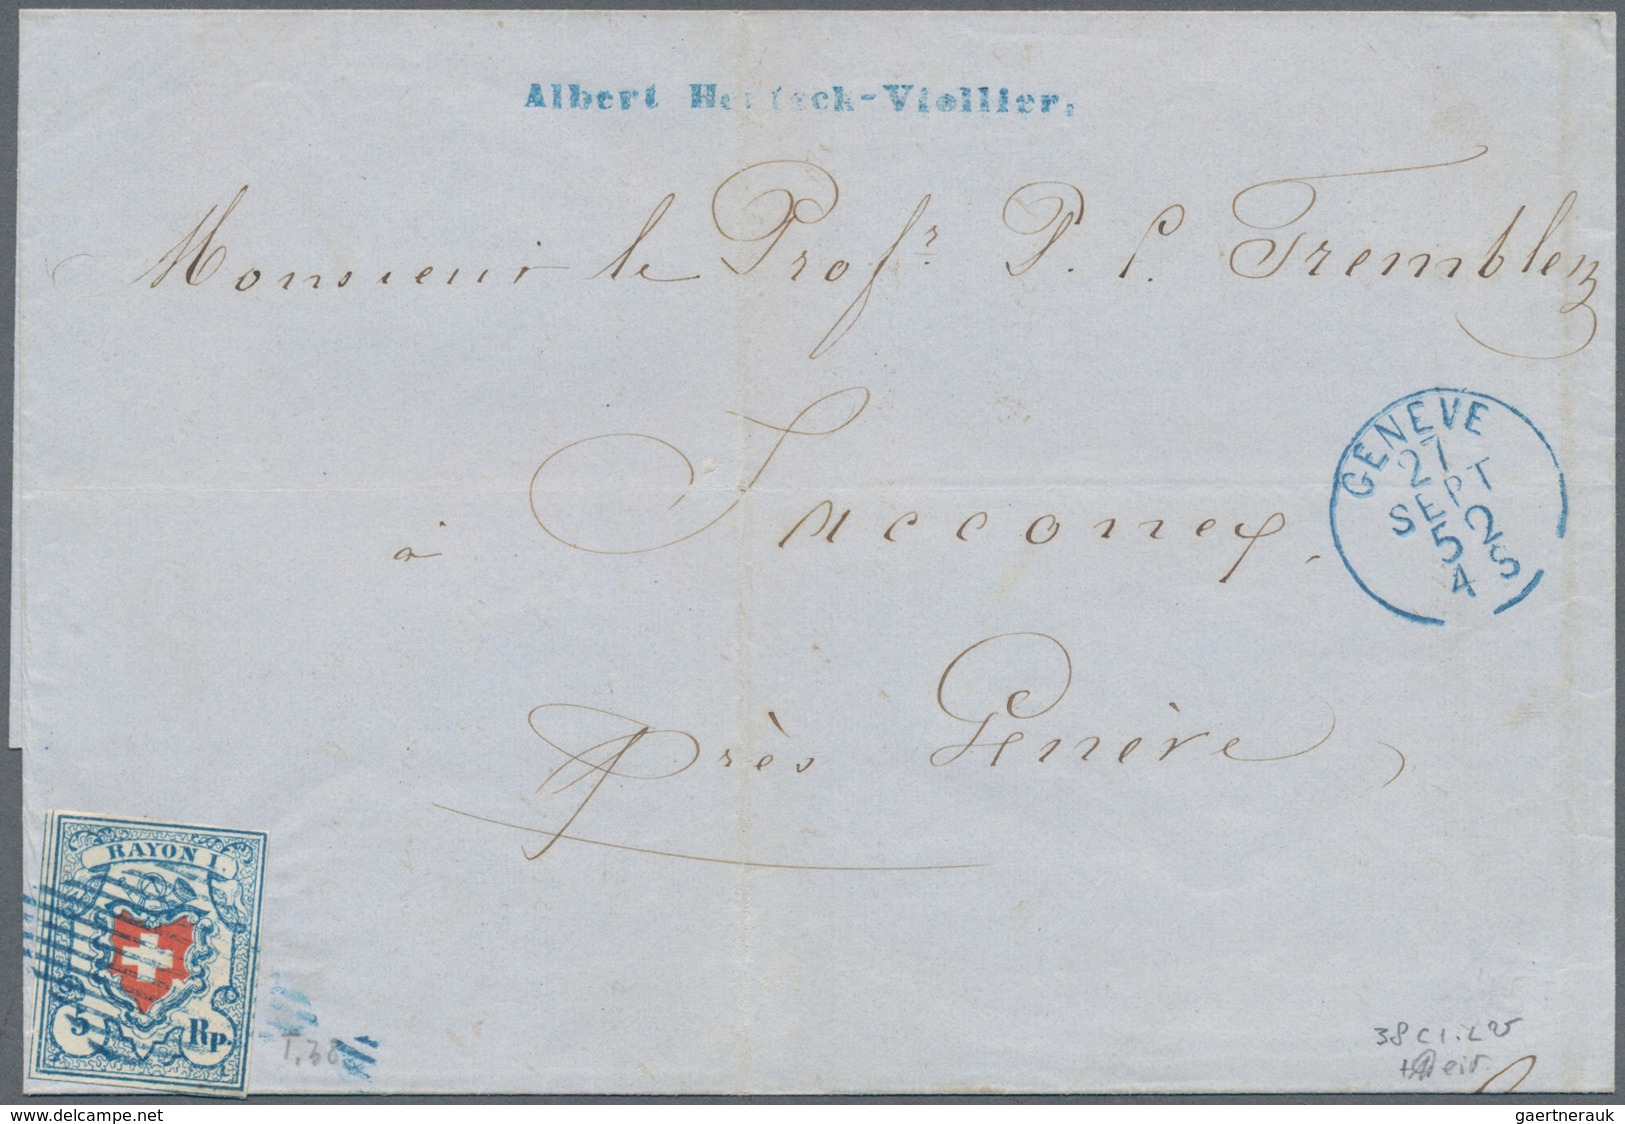 Albert Hentsch-Viollier.
Monsieur le Profr. P. P. Trembley
à Sacconex.
près Genève
GENEVE
27
SEPT
52
4 S
RAYON I.
5 Rp.
T.38
38 C1. L
gaertnerauk